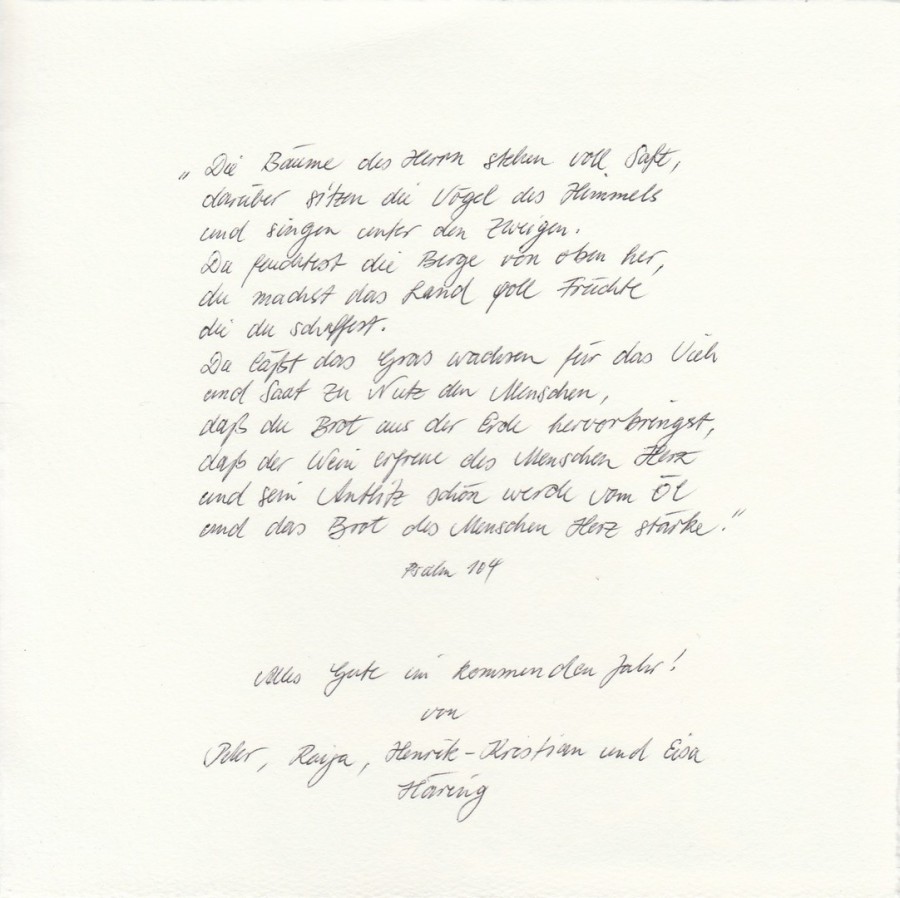 „Die Bäume des Herrn stehen voll Saft,
darüber sitzen die Vögel des Himmels
und singen unter den Zweigen.
Du feuchtest die Berge von oben her,
du machst das Land voll Früchte
die du schaffest.
Du läßt das Gras wachsen für das Vieh
und Saat zu Nutz den Menschen,
daß du Brot aus der Erde hervorbringst,
daß der Wein erfreue des Menschen Herz
und sein Antlitz schön werde vom Öl
und das Brot des Menschen Herz stärke."
Psalm 104
Alles Gute im kommenden Jahr!
von
Peter, Raija, Henrik-Kristian und Eisa
Häring